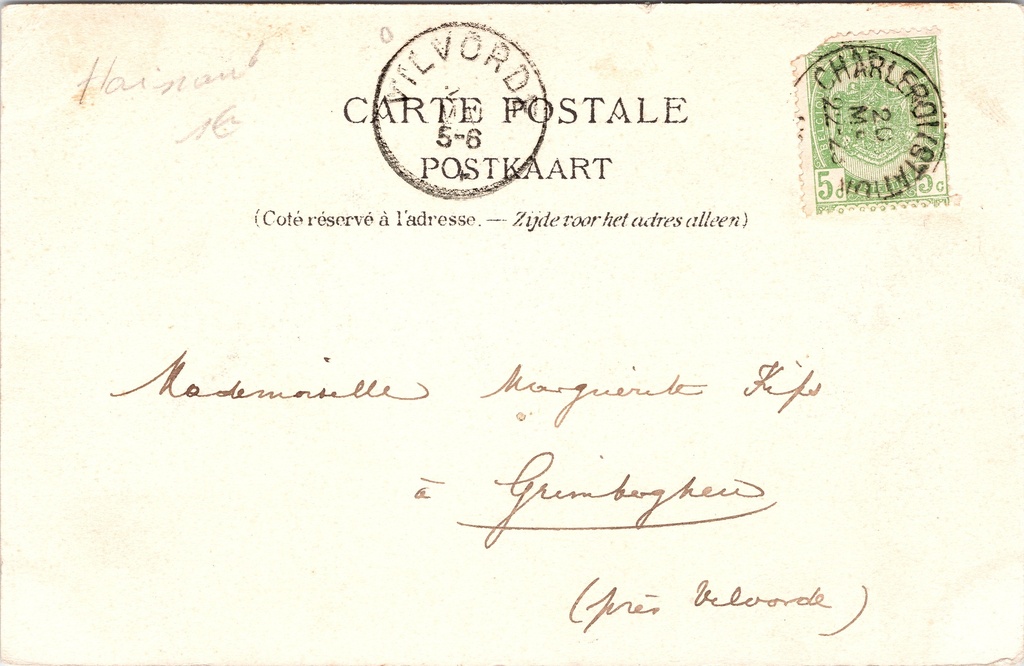 Hainaut
1€
VILVORDE
5-6
CARTE POSTALE
POSTKAART
(Coté réservé à l'adresse. — Zijde voor het adres alleen)
CHARLEROI (STATION)
20
5c 5c
Mademoiselle Marguerite Kips
à Grimberghen
(près Vilvorde)